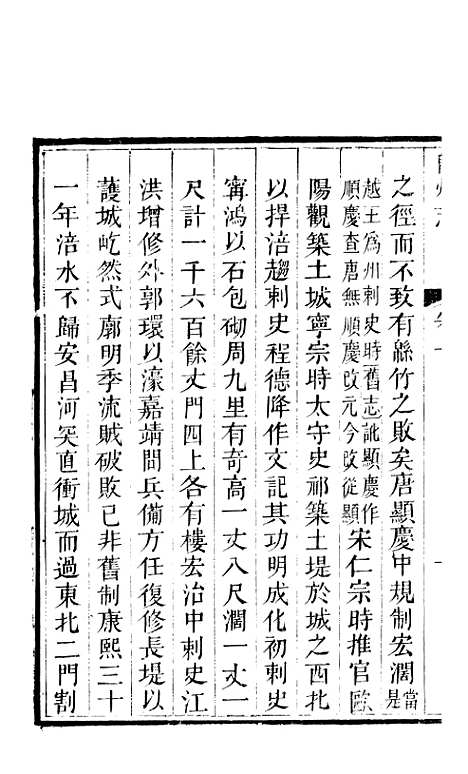 之徑而不致有緜竹之敗矣唐顯慶中規制宏濶當是
越王爲州刺史時舊志訛顯慶作順慶查唐無順慶改元今改從顯宋仁宗時推官歐
陽觀築土城寧宗時太守史祁築土堤於城之西北
以捍涪趨刺史程德降作文記其功明成化初刺史
甯鴻以石包砌周九里有奇高一丈八尺濶一丈一
尺計一千六百餘丈門四上各有樓宏治中刺史江
洪增修外郭環以濠嘉靖間兵備方任復修長堤以
護城屹然式廓明季流賊破敗已非舊制康熙三十
一年涪水不歸安昌河突直衝城而過東北二門割